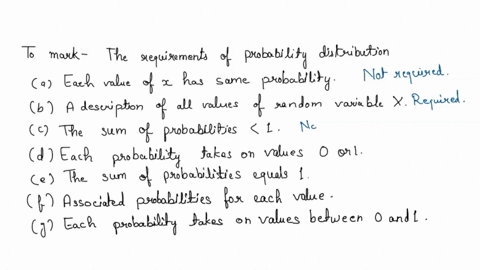 To mark- The requirements of probability distribution
(a) Each value of x has same probability. Not required.
(b) A description of all values of random variable X. Required.
(c) The sum of probabilities < 1. No
(d) Each probability takes on values 0 or 1.
(e) The sum of probabilities equals 1.
(f) Associated probabilities for each value.
(g) Each probability takes on values between 0 and 1.